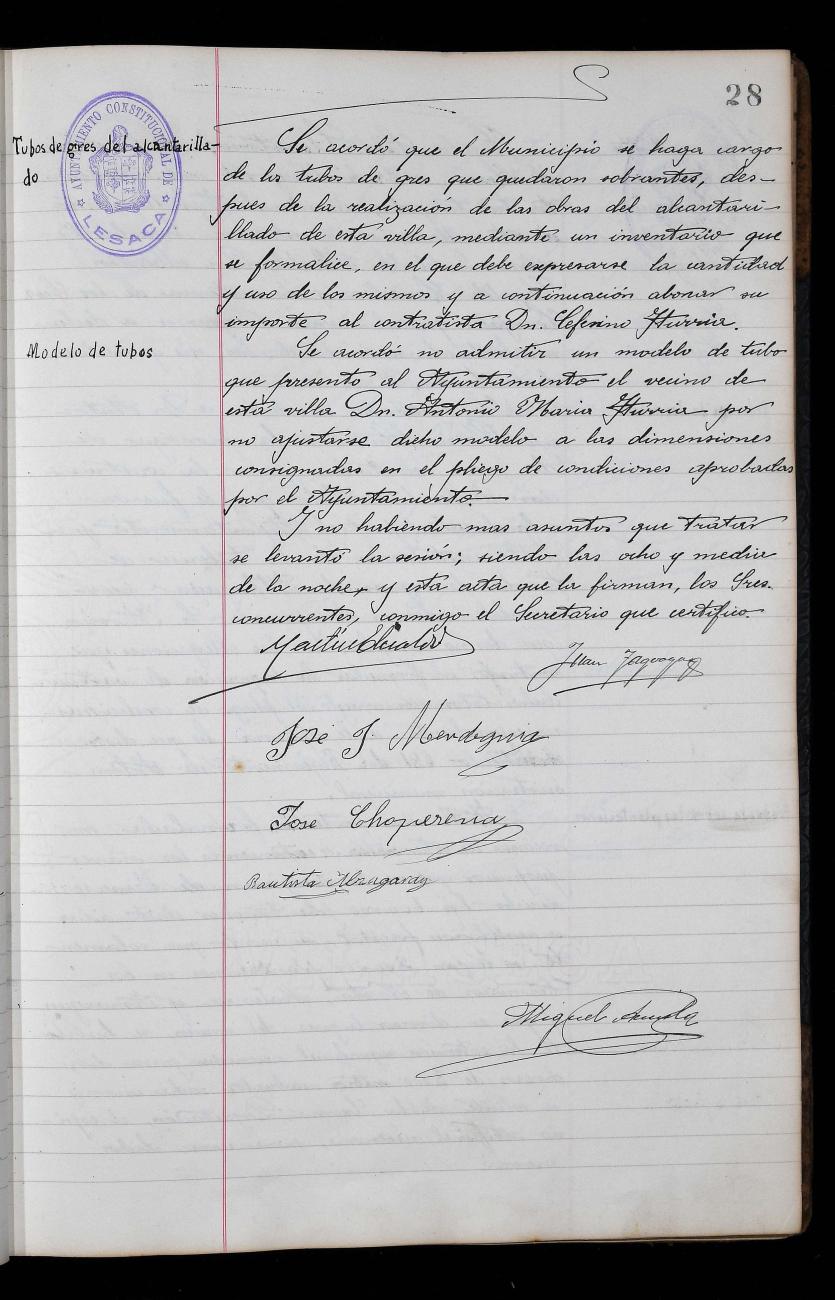 28
AYUNTAMIENTO CONSTITUCIONAL DE
LESACA
Tubos de gires del alcantarilla-
do
Se acordó que el Municipio se haga cargo
de los tubos de gres que quedaron sobrantes, des-
pues de la realización de las obras del alcantari-
llado de esta villa, mediante un inventario que
se formalice, en el que debe expresarse la cantidad
y uso de los mismos y a continuación abonar su
importe al contratista Dn. Ceferino Iturria.
Modelo de tubos
Se acordó no admitir un modelo de tubo
que presentó al Ayuntamiento el vecino de
esta villa Dn. Antonio Maria Iturria por
no ajustarse dicho modelo a las dimensiones
consignadas en el pliego de condiciones aprobadas
por el Ayuntamiento.
Y no habiendo mas asuntos que tratar
se levantó la sesión; siendo las ocho y media
de la noche, y esta acta que la firman, los Sres.
concurrentes, conmigo el Secretario que certifico.
Martín
Juan
José J. Mendeguia
José Choperena
Bautista
Miguel